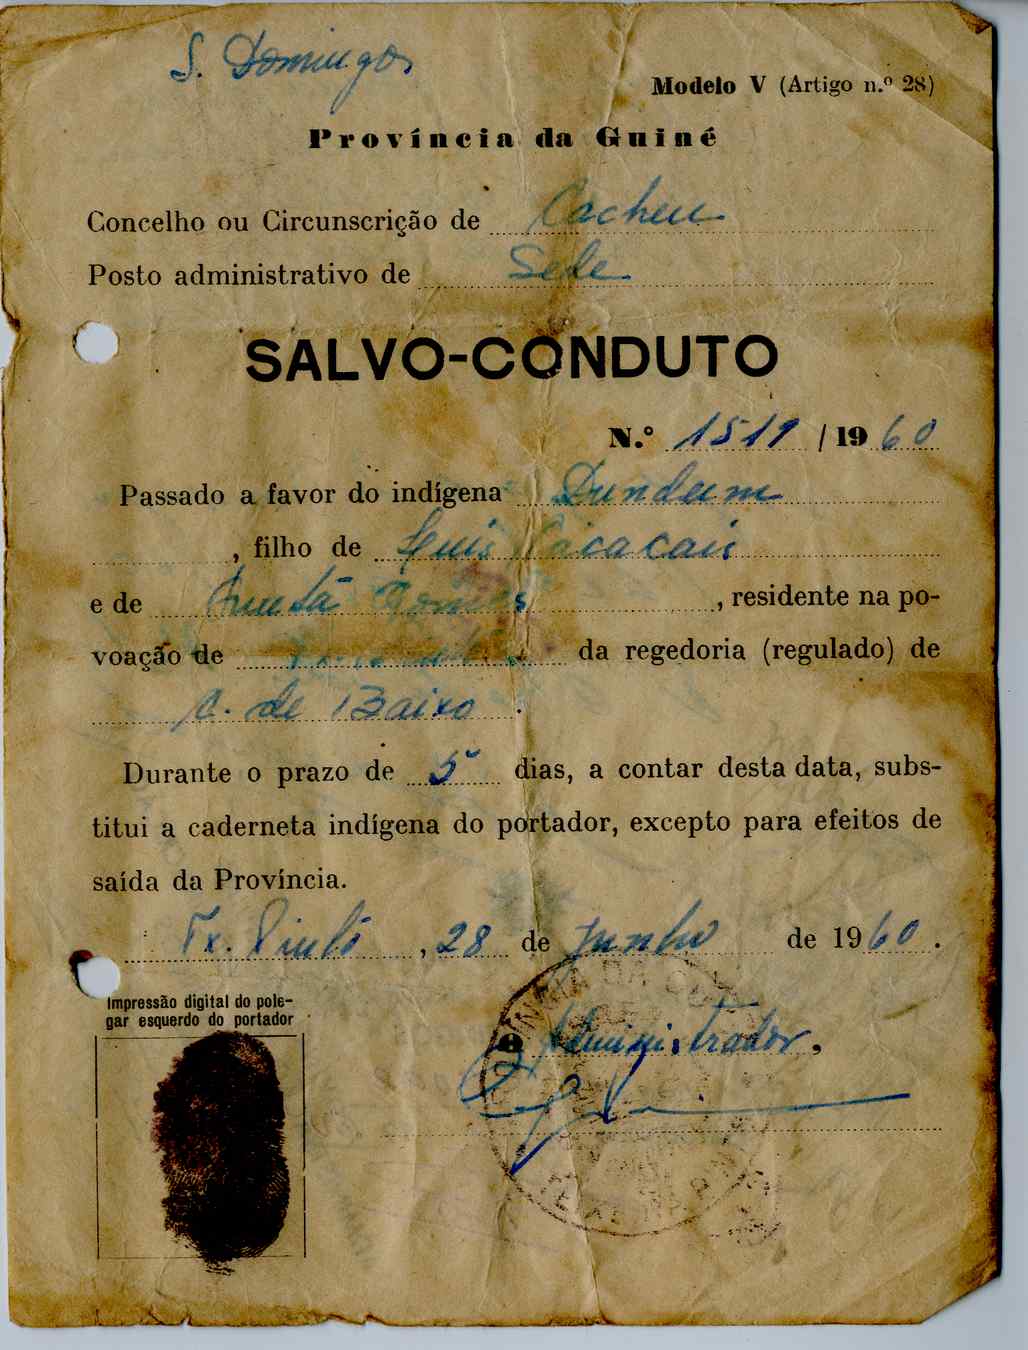 S. Domingos
Modelo V (Artigo n.º 28)
Província da Guiné
Concelho ou Circunscrição de Cacheu
Posto administrativo de Sede
SALVO-CONDUTO
N.º 1519 / 1960
Passado a favor do indígena Dundum
, filho de Luis Cacacais
e de Gomes , residente na po-
voação de da regedoria (regulado) de
C. de Baixo .
Durante o prazo de 5 dias, a contar desta data, subs-
titui a caderneta indígena do portador, excepto para efeitos de
saída da Província.
Tx. Pintº , 28 de Junho de 1960.
Impressão digital do pole-
gar esquerdo do portador
O Administrador,